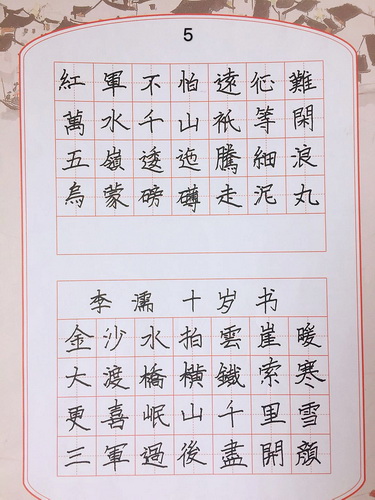 5
紅軍不怕遠征難
萬水千山衹等閑
五嶺逶迤騰細浪
烏蒙磅礴走泥丸
李濡十岁书
金沙水拍雲崖暖
大渡橋橫鐵索寒
更喜岷山千里雪
三軍過後盡開顏